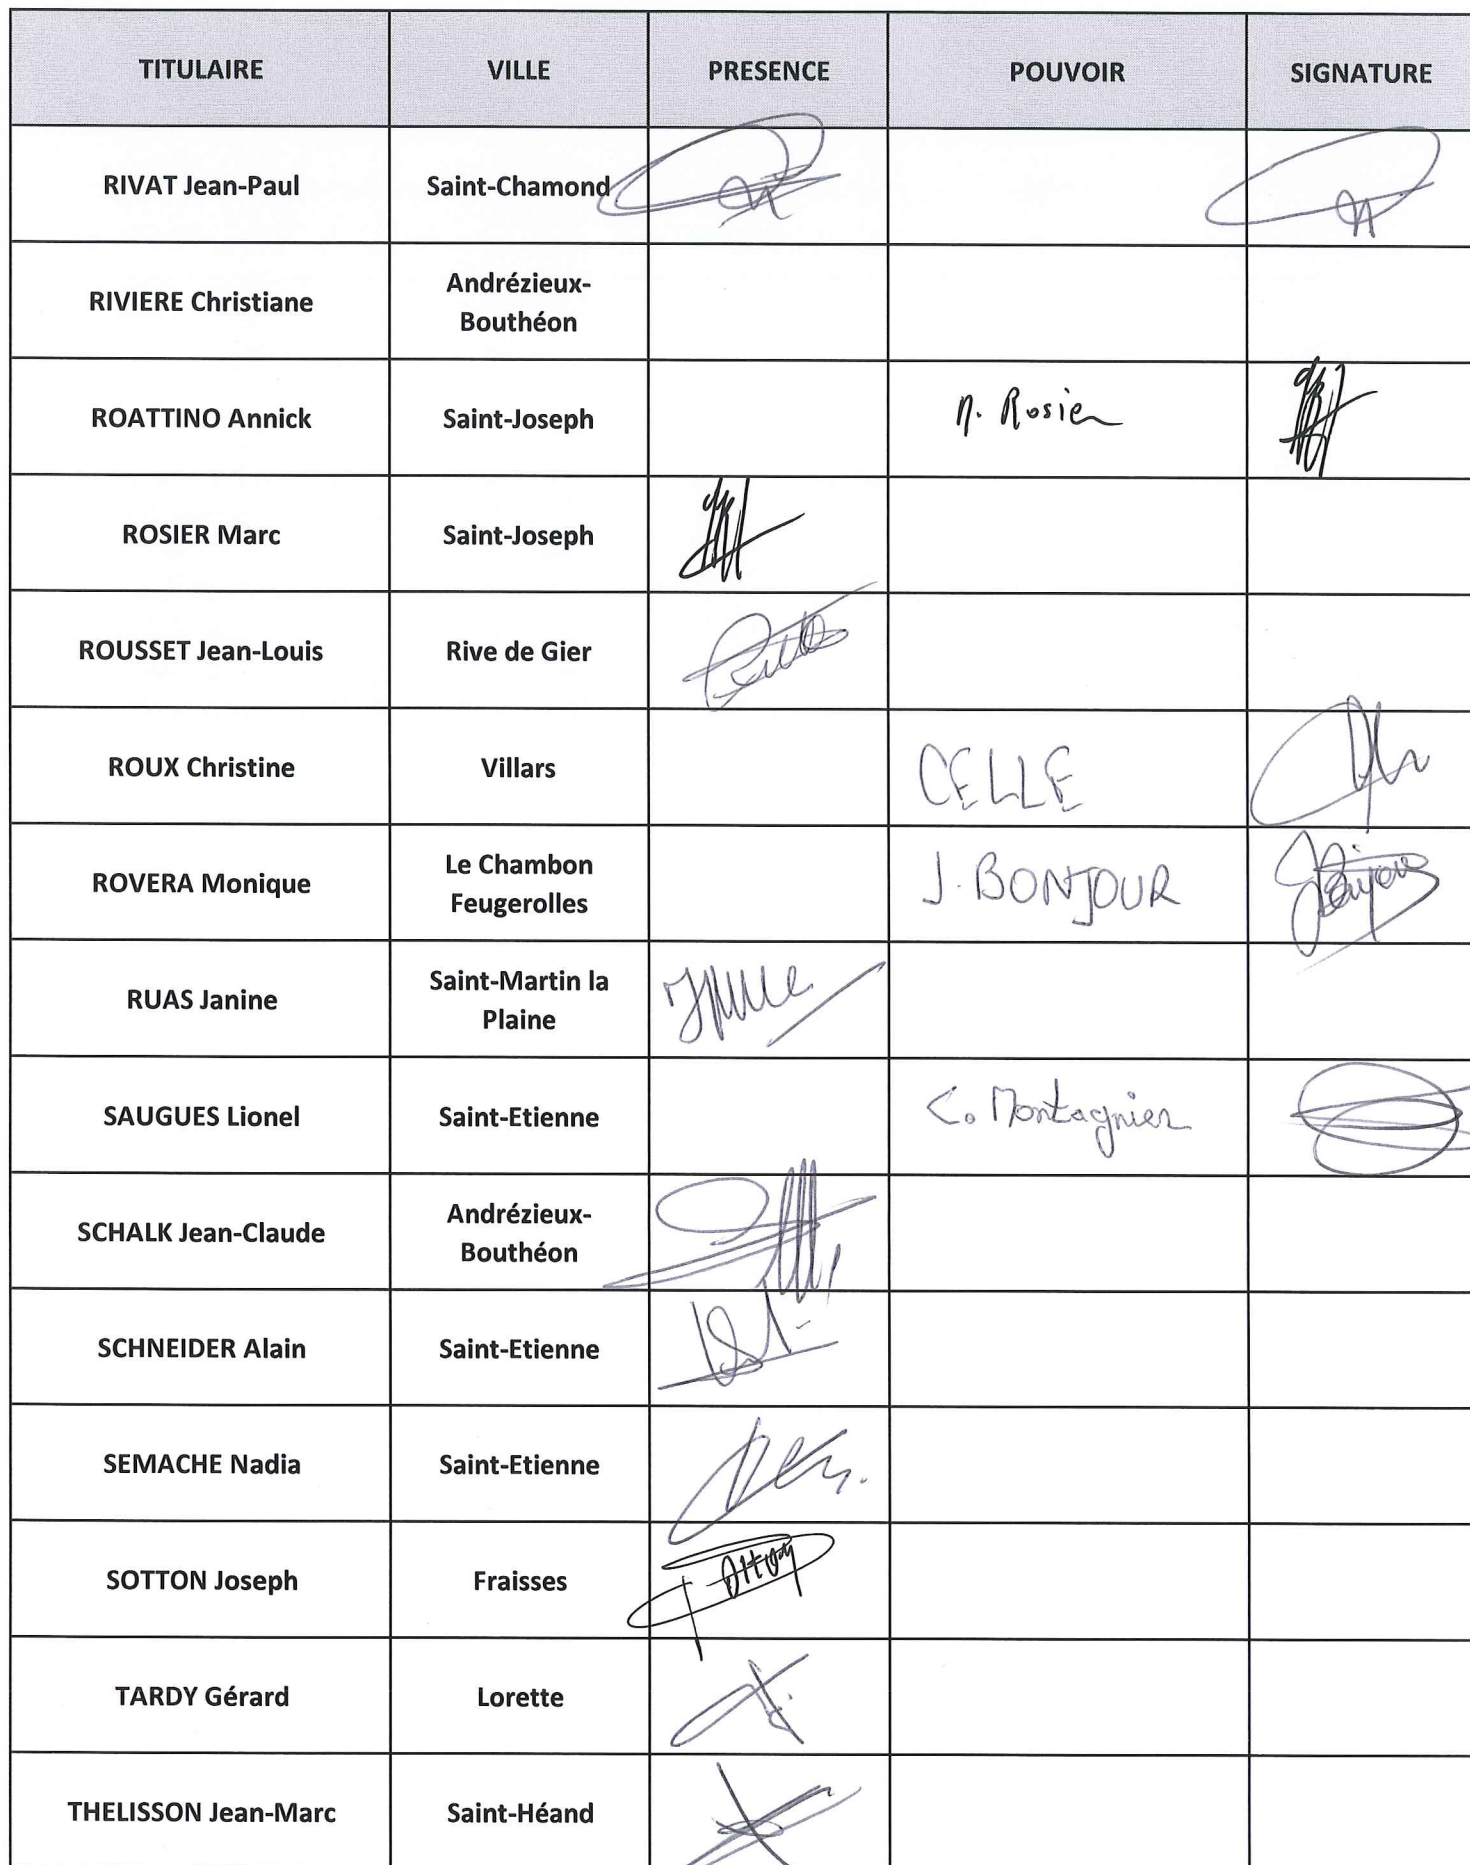 TITULAIRE VILLE PRESENCE POUVOIR SIGNATURE
RIVAT Jean-Paul Saint-Chamond
RIVIERE Christiane Andrézieux-
Bouthéon
ROATTINO Annick Saint-Joseph Rosier
ROSIER Marc Saint-Joseph
ROUSSET Jean-Louis Rive de Gier
ROUX Christine Villars CELLE
ROVERA Monique Le Chambon
Feugerolles J. BONJOUR
RUAS Janine Saint-Martin la
Plaine
SAUGUES Lionel Saint-Etienne C. Montagnier
SCHALK Jean-Claude Andrézieux-
Bouthéon
SCHNEIDER Alain Saint-Etienne
SEMACHE Nadia Saint-Etienne
SOTTON Joseph Fraisses
TARDY Gérard Lorette
THELISSON Jean-Marc Saint-Héand